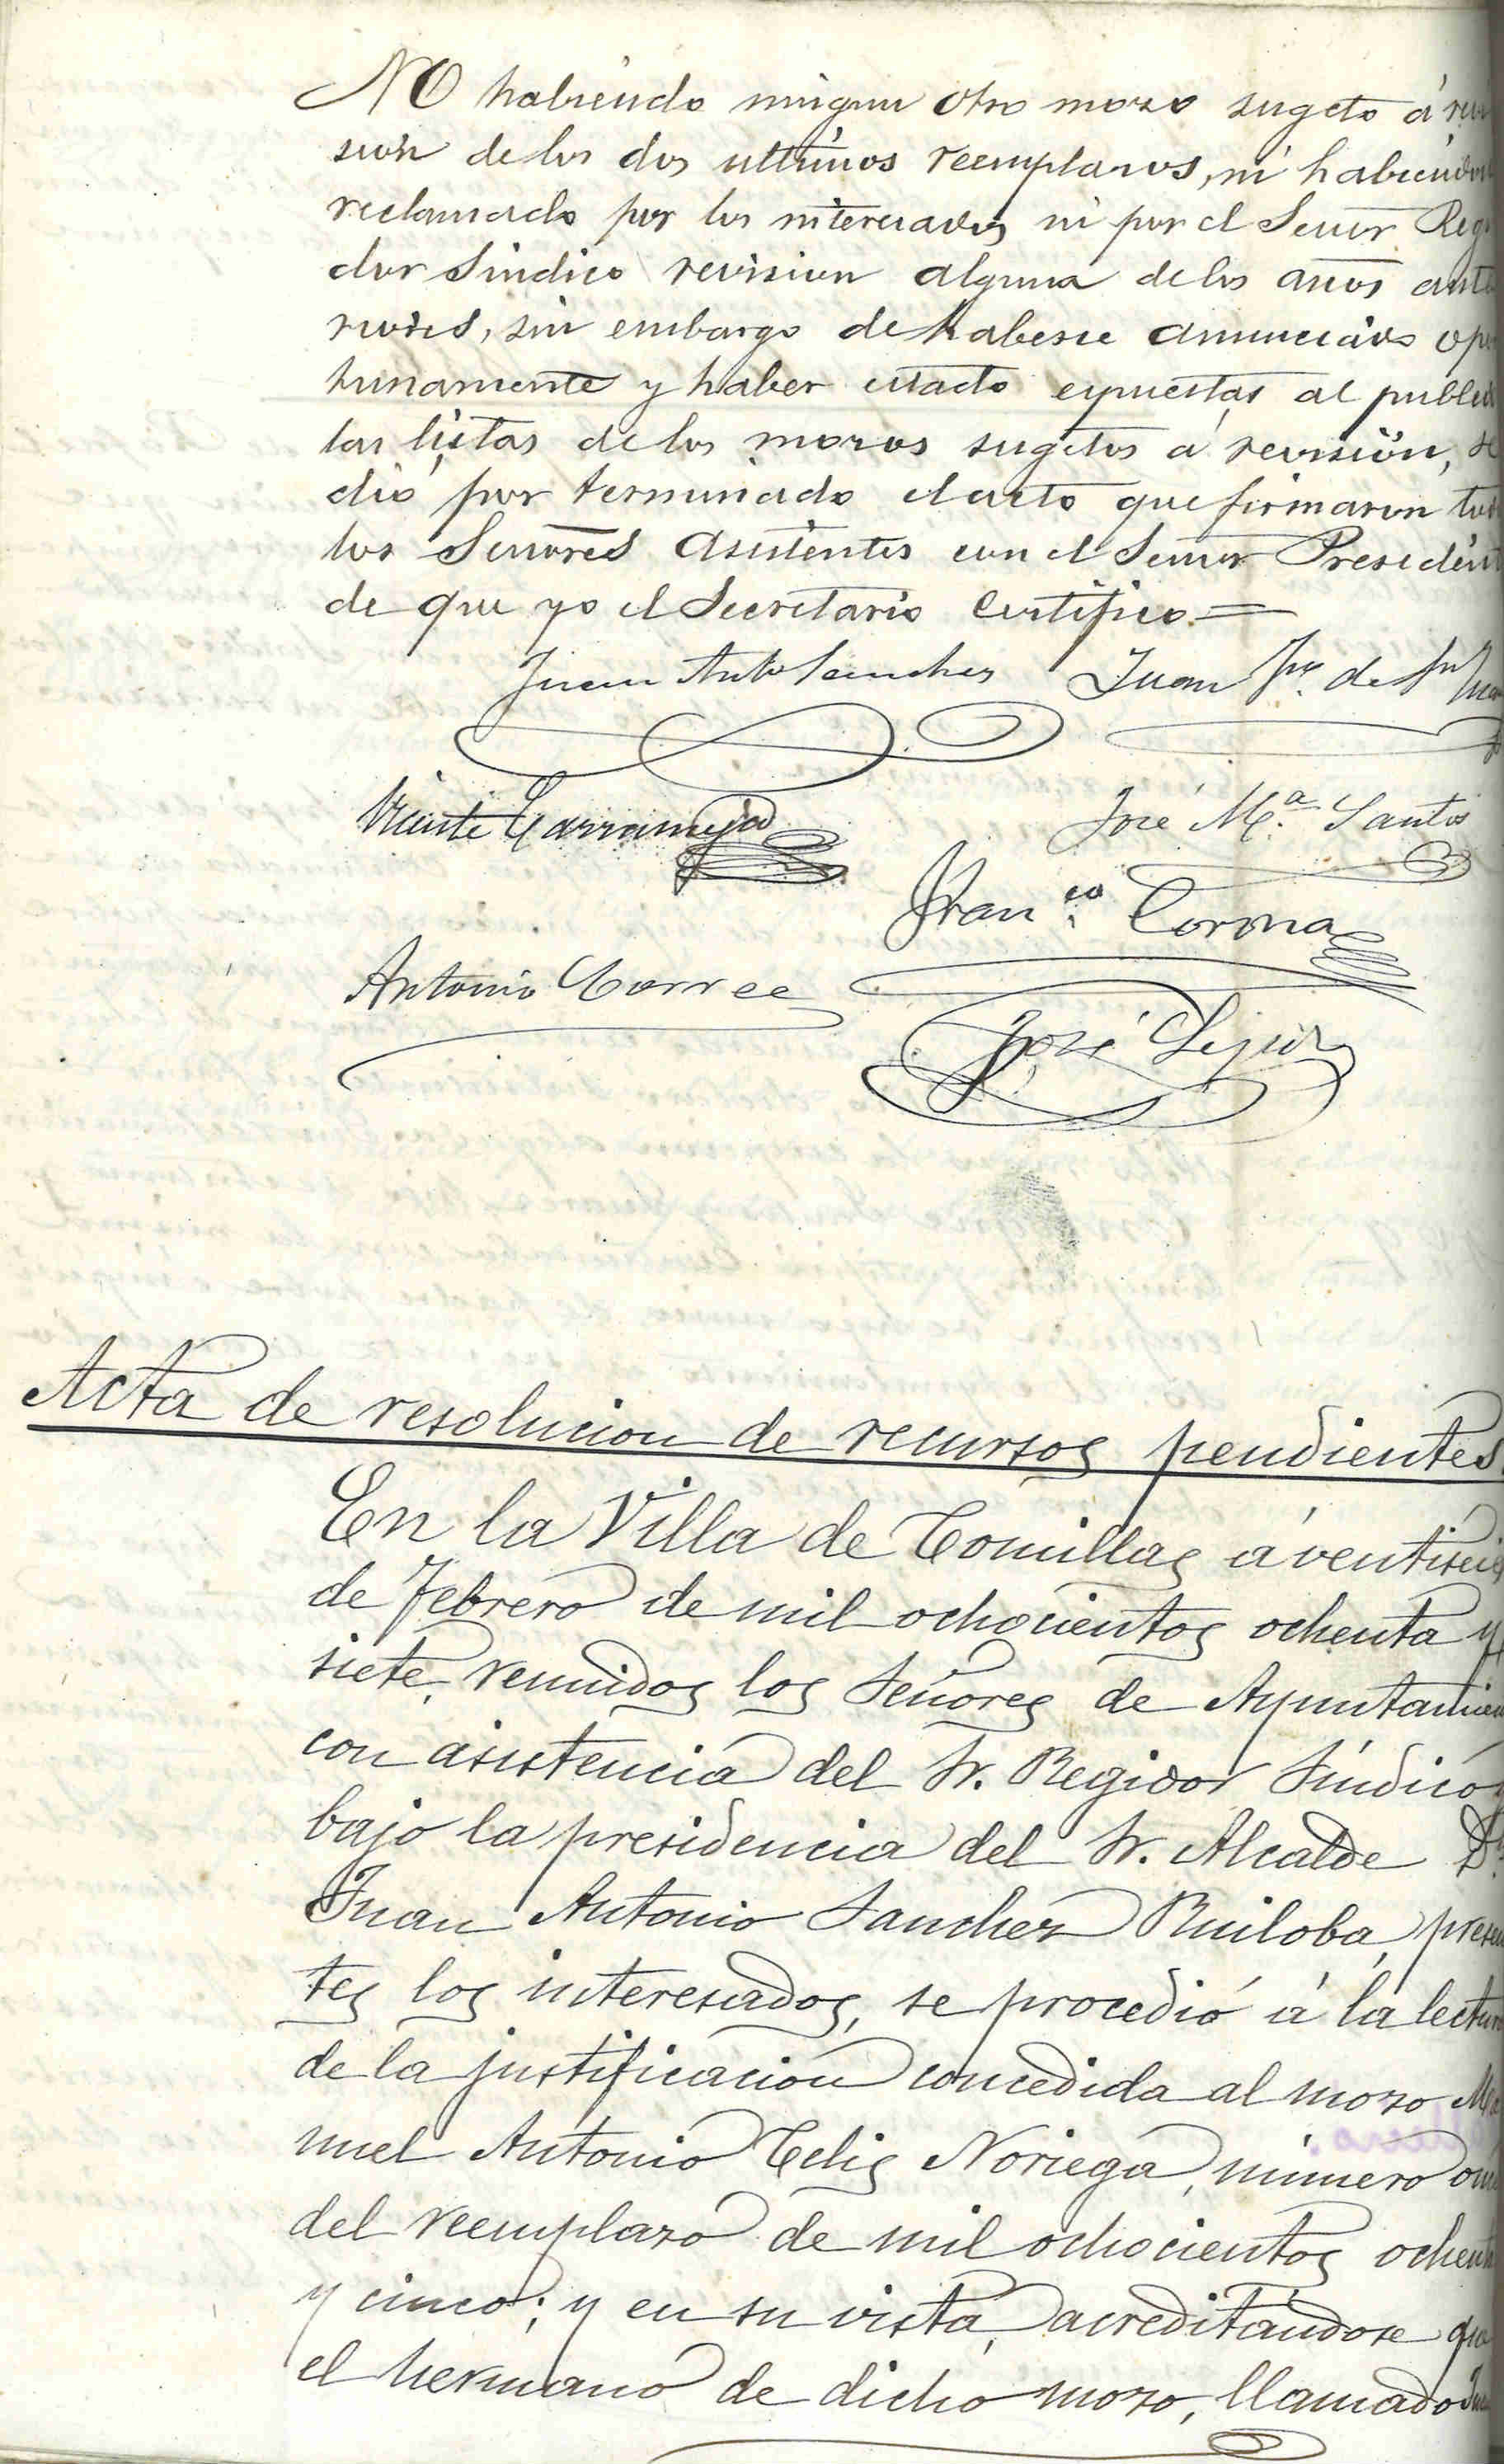 NO habiendo ningun otro mozo sugeto á revi
sion de los dos ultimos reemplazos, ni habiendose
reclamado por los interesados ni por el Señor Regi
dor Sindico revision alguna de los años ante
riores, sin embargo de haberse anunciado opor
tunamente y haber estado espuestas al publico
las listas de los mozos sugetos á revisión, se
dió por terminado el acto que firmaron todos
los Señores asistentes con el Señor Presidente
de que yo el Secretario Certifico.=
Juan Anto Sanchez Juan de
Vicente José M.ª Santos
Fran.co
Antonio Correa
José
Acta de resolucion de recursos pendientes.
En la Villa de Comillas á ventiseis
de Febrero de mil ochocientos ochenta y
siete, reunidos los Señores de Ayuntamien
con asistencia del Sr. Regidor Síndico y
bajo la presidencia del Sr. Alcalde D.n
Juan Antonio Sanchez Ruiloba, presen
tes los interesados, se procedió á la lectura
de la justificacion concedida al mozo Ma
nuel Antonio Celis Noriega, número once
del reemplazo de mil ochocientos ochenta
y cinco; y en su vista, acreditandose que
el hermano de dicho mozo, llamado